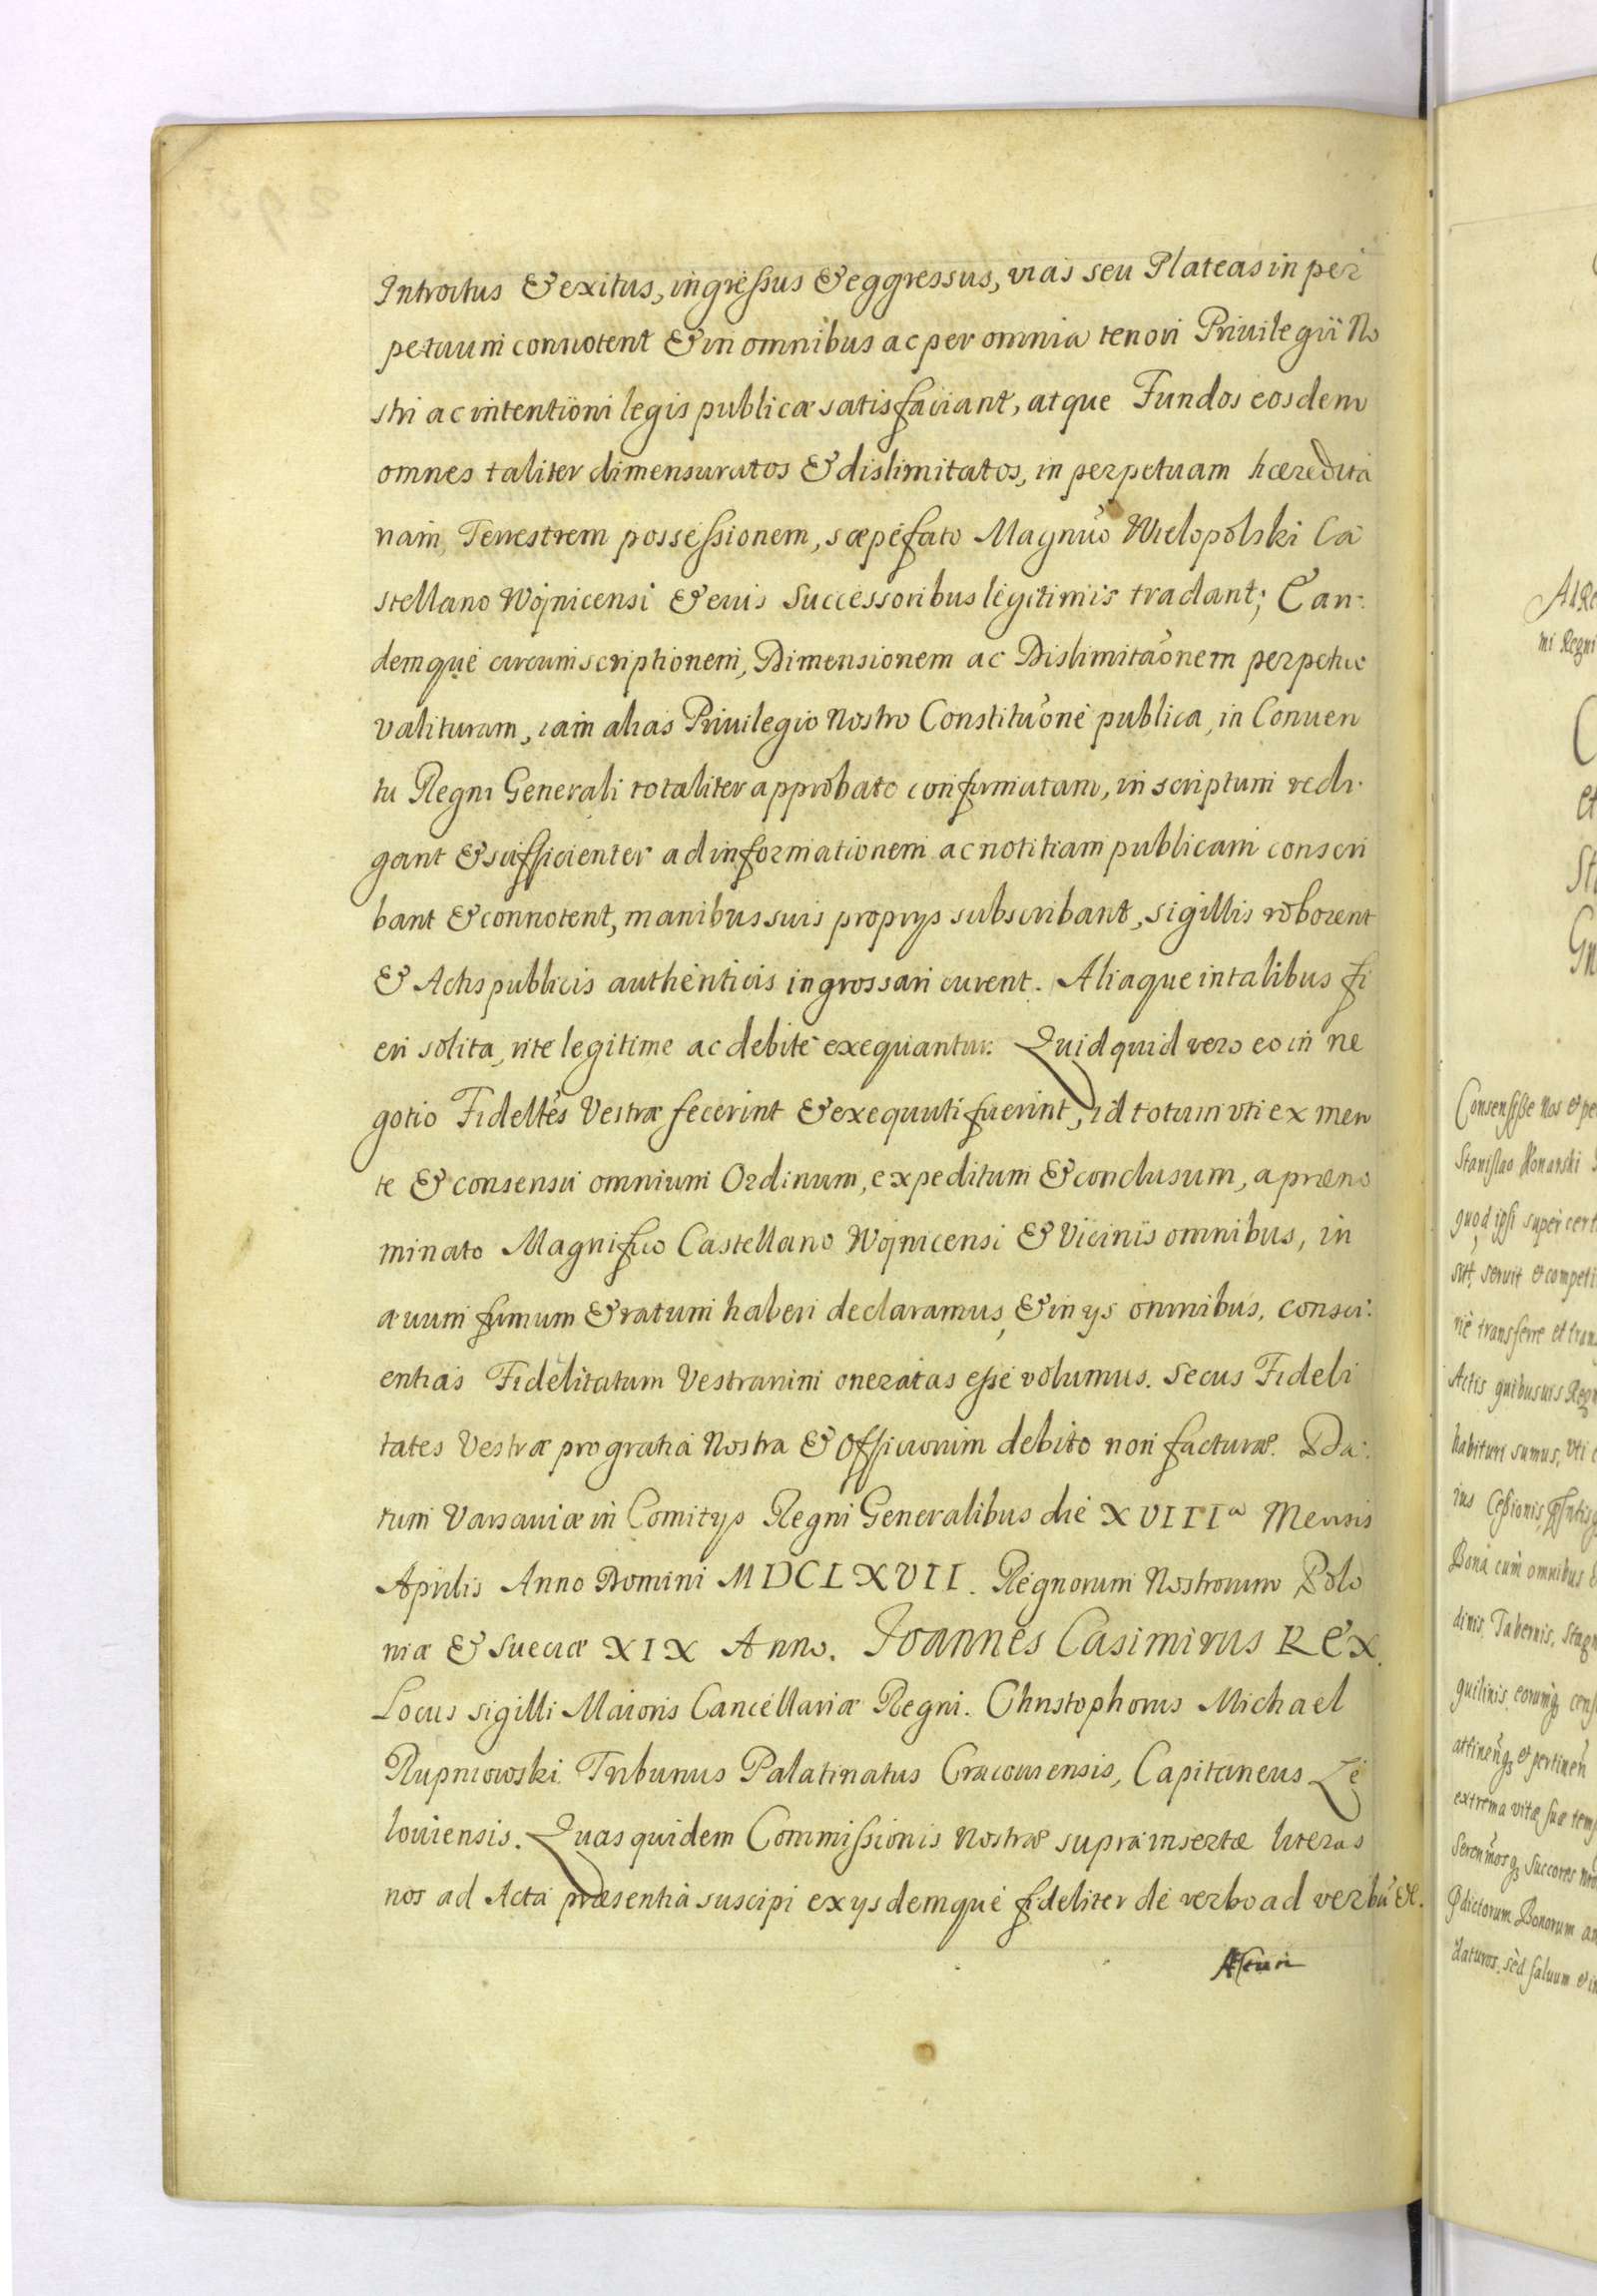 Introitus & exitus, ingressus & eggressus, vias seu Plateas in per
petuum connotent & in omnibus ac per omnia tenori Priuilegii No
stri ac intentioni legis publicæ satisfaciant, atque Fundos eosdem
omnes taliter dimensuratos & dislimitatos, in perpetuam hæredita
riam, Terrestrem possessionem, sæpefato Magn͠co Wielopolski Ca
stellano Wojnicensi & eius Successoribus legitimis tradant; Ean:
demque circumscriptionem, Dimensionem ac Dislimitãonem perpetue
valituram, iam alias Priuilegio Nostro Constitu͠one publica, in Conuen
tu Regni Generali totaliter approbato confirmatam, in scriptum redi:
gant & sufficienter ad informationem ac notitiam publicam conscri
bant & connotent, manibus suis proprys subscribant, sigillis roborent
& Actis publicis authenticis ingrossari curent. Aliaque in talibus fi
eri solita, rite legitime ac debite exequantur. Quidquid vero eo in ne
gotio Fideltes Vestræ fecerint & exequuti fuerint, id totum vti ex men
te & consensu omnium Ordinum, expeditum & conclusum, a præno
minato Magnifico Castellano Wojnicensi & Vicinis omnibus, in
æuum firmum & ratum haberi declaramus, & in ys omnibus, consci:
entias Fidelitatum Vestrarum oneratas esse volumus. Secus Fideli
tates Vestræ pro gratia Nostra & Officiorum debito non facturæ. Da:
tum Varsauiæ in Comitys Regni Generalibus die XVIIIa Mensis
Aprilis Anno Domini MDCLXVII. Regnorum Nostrorum Polo
niæ & Sueciæ XIX Anno. Joannes Casimirus REX.
Locus sigilli Maioris Cancellariæ Regni. Christophorus Michael
Rupniowski Tribunus Palatinatus Cracouiensis, Capitaneus Ze
louiensis. Quas quidem Commissionis Nostræ supra insertæ literas
nos ad Acta præsentia suscipi ex ysdemque fideliter de verbo ad verbũ &.
Ad Re
mi Regni
C
et
St
Gn
Consensisse Nos et pe
Stanislao Konarski
quod ipsi super cert
sit, seruit et competi
rie transferre et tran
Actis quibusuis Regn
habituri sumus, Vti
ius Cessionis
Bona cum omnibus
dinis, Tabernis, Stagn
quilinis, eorumq cens
attineñq et pertineñ
extrema vitæ suæ temp
Serenmosq Succores nro
Pdictorum Bonorum
daturos, sed saluum et in